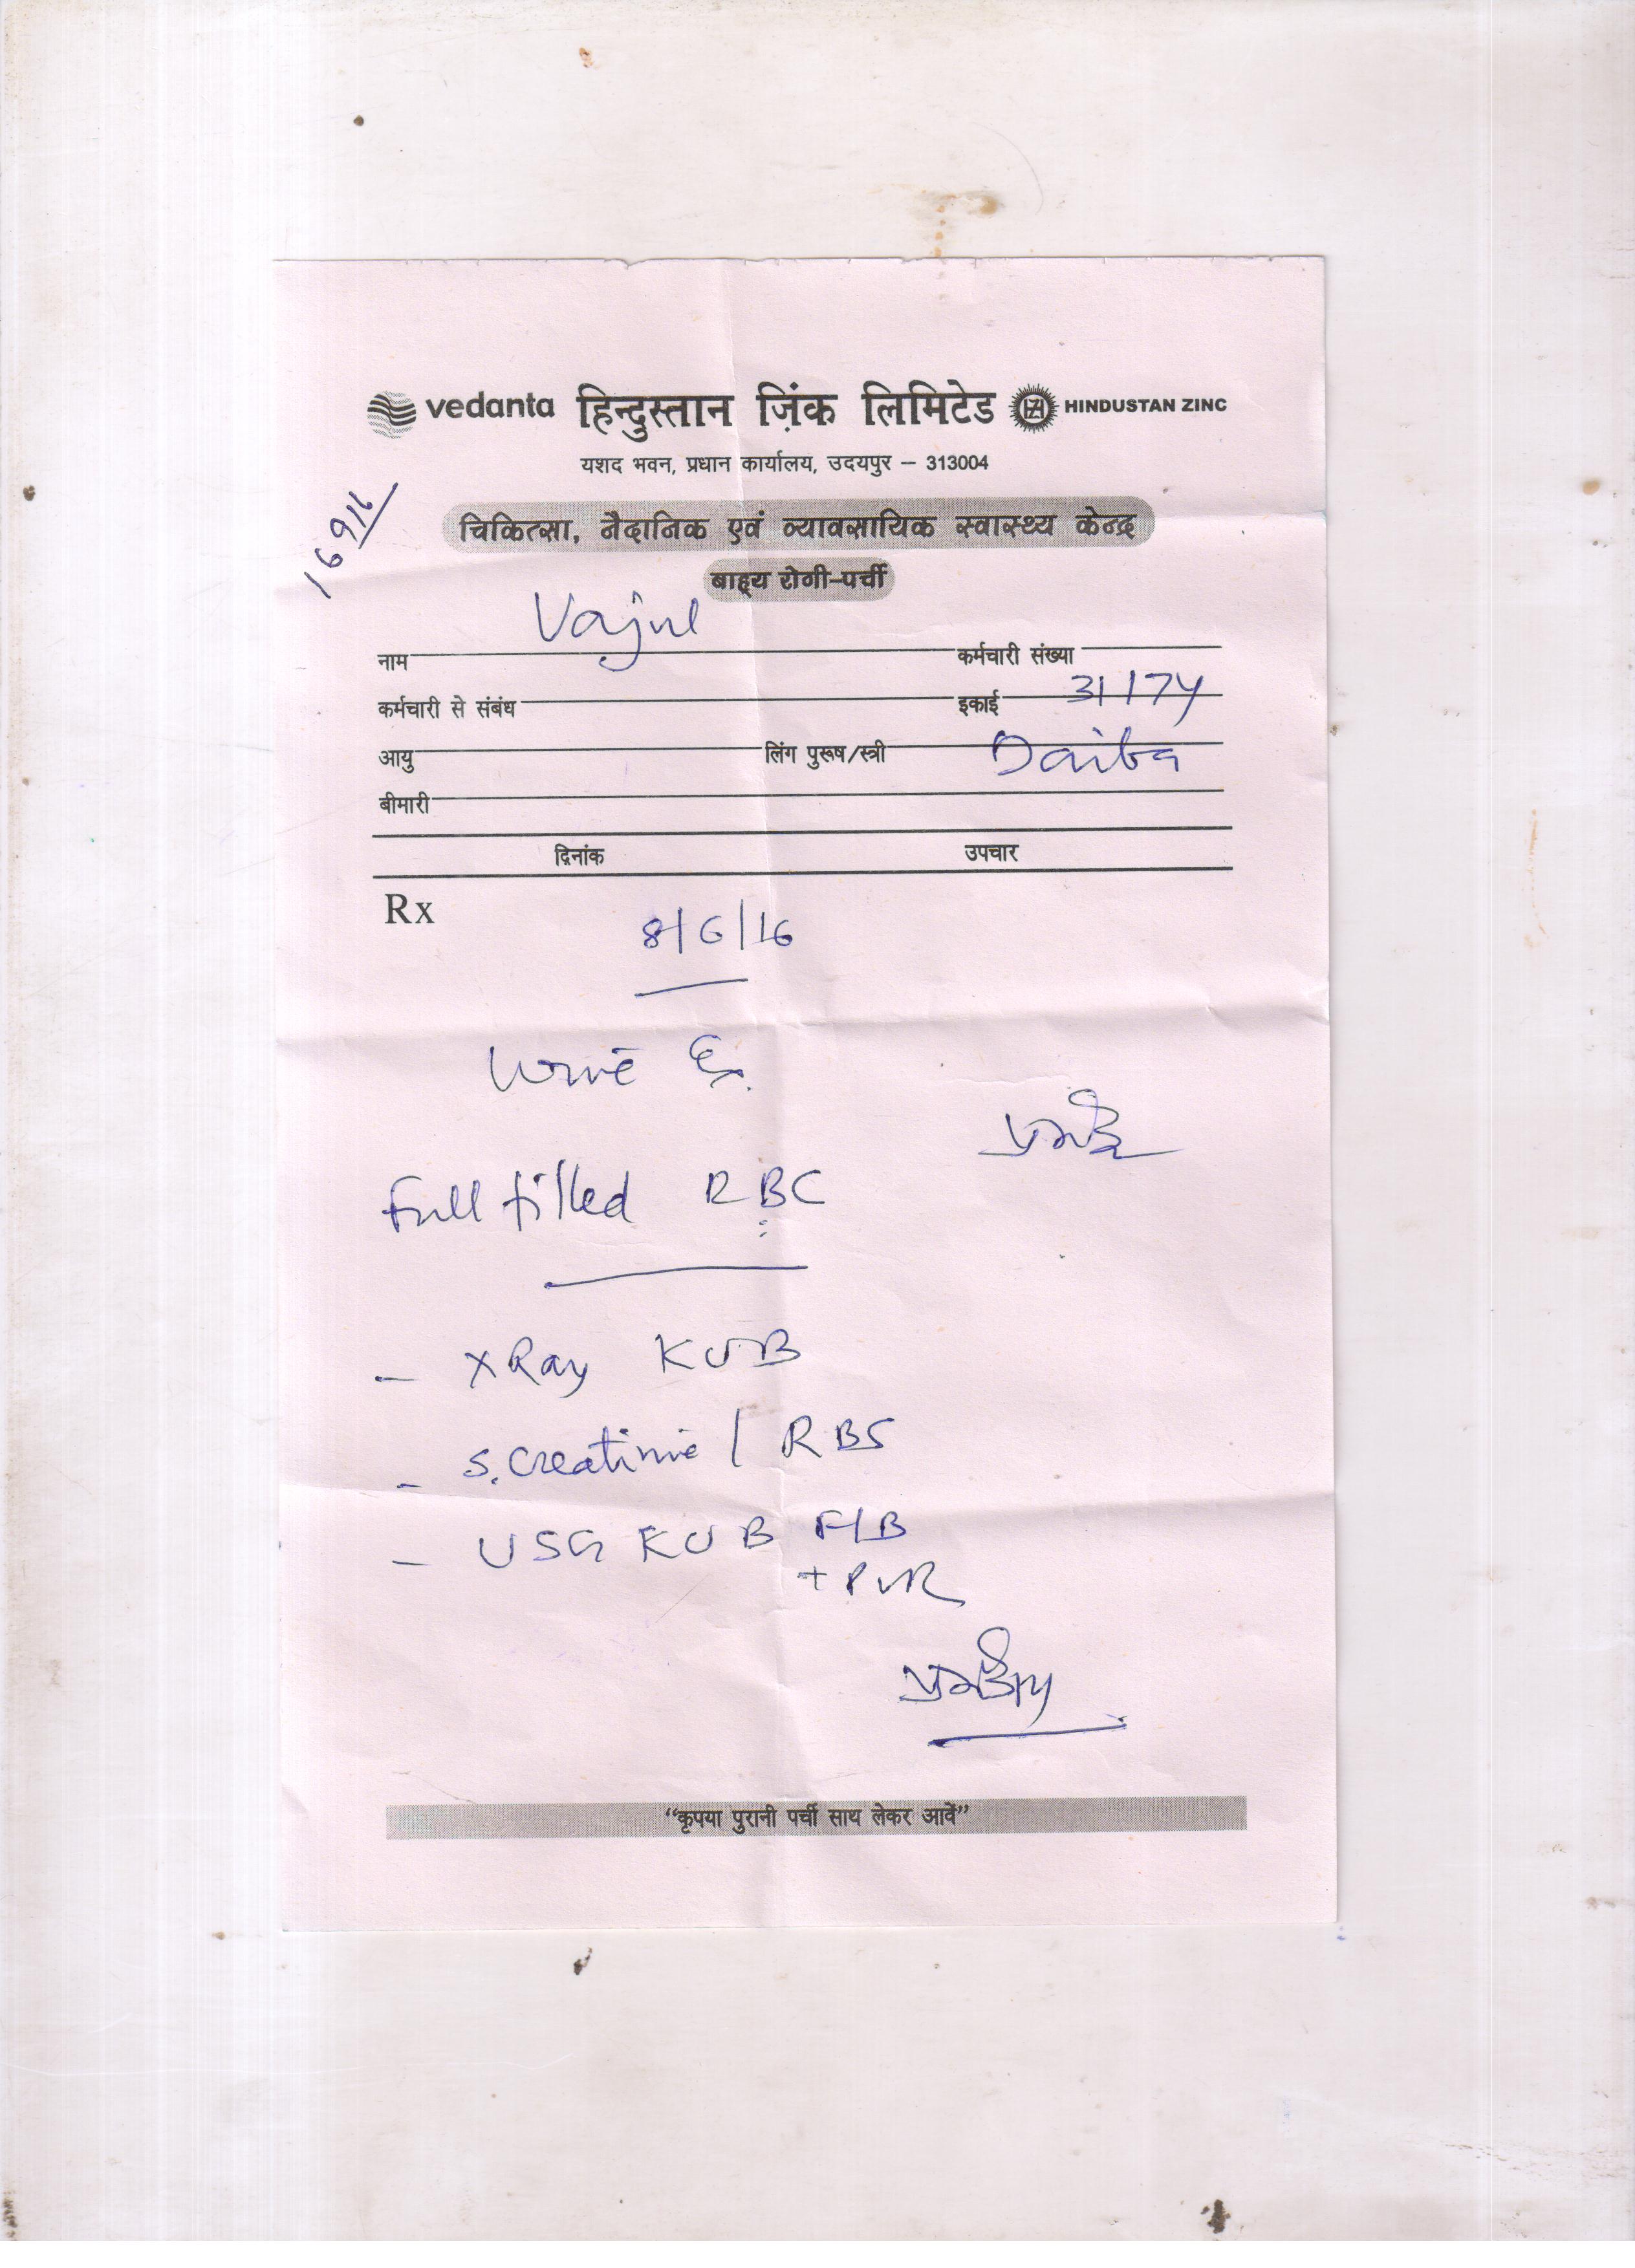 vedanta हिन्दुस्तान ज़िंक लिमिटेड HINDUSTAN ZINC
यशद भवन, प्रधान कार्यालय, उदयपुर – 313004
चिकित्सा, नैदानिक एवं व्यावसायिक स्वास्थ्य केन्द्र
बाह्य रोगी-पर्ची
नाम कर्मचारी संख्या
कर्मचारी से संबंध इकाई 31174
आयु लिंग पुरूष/स्त्री
बीमारी
दिनांक उपचार
Rx
8/6/16
Urine
Full filled RBC
- X Ray KUB
- S. Creatinine / RBS
- USG KUB F/B
+ PVR
“कृपया पुरानी पर्ची साथ लेकर आवें”